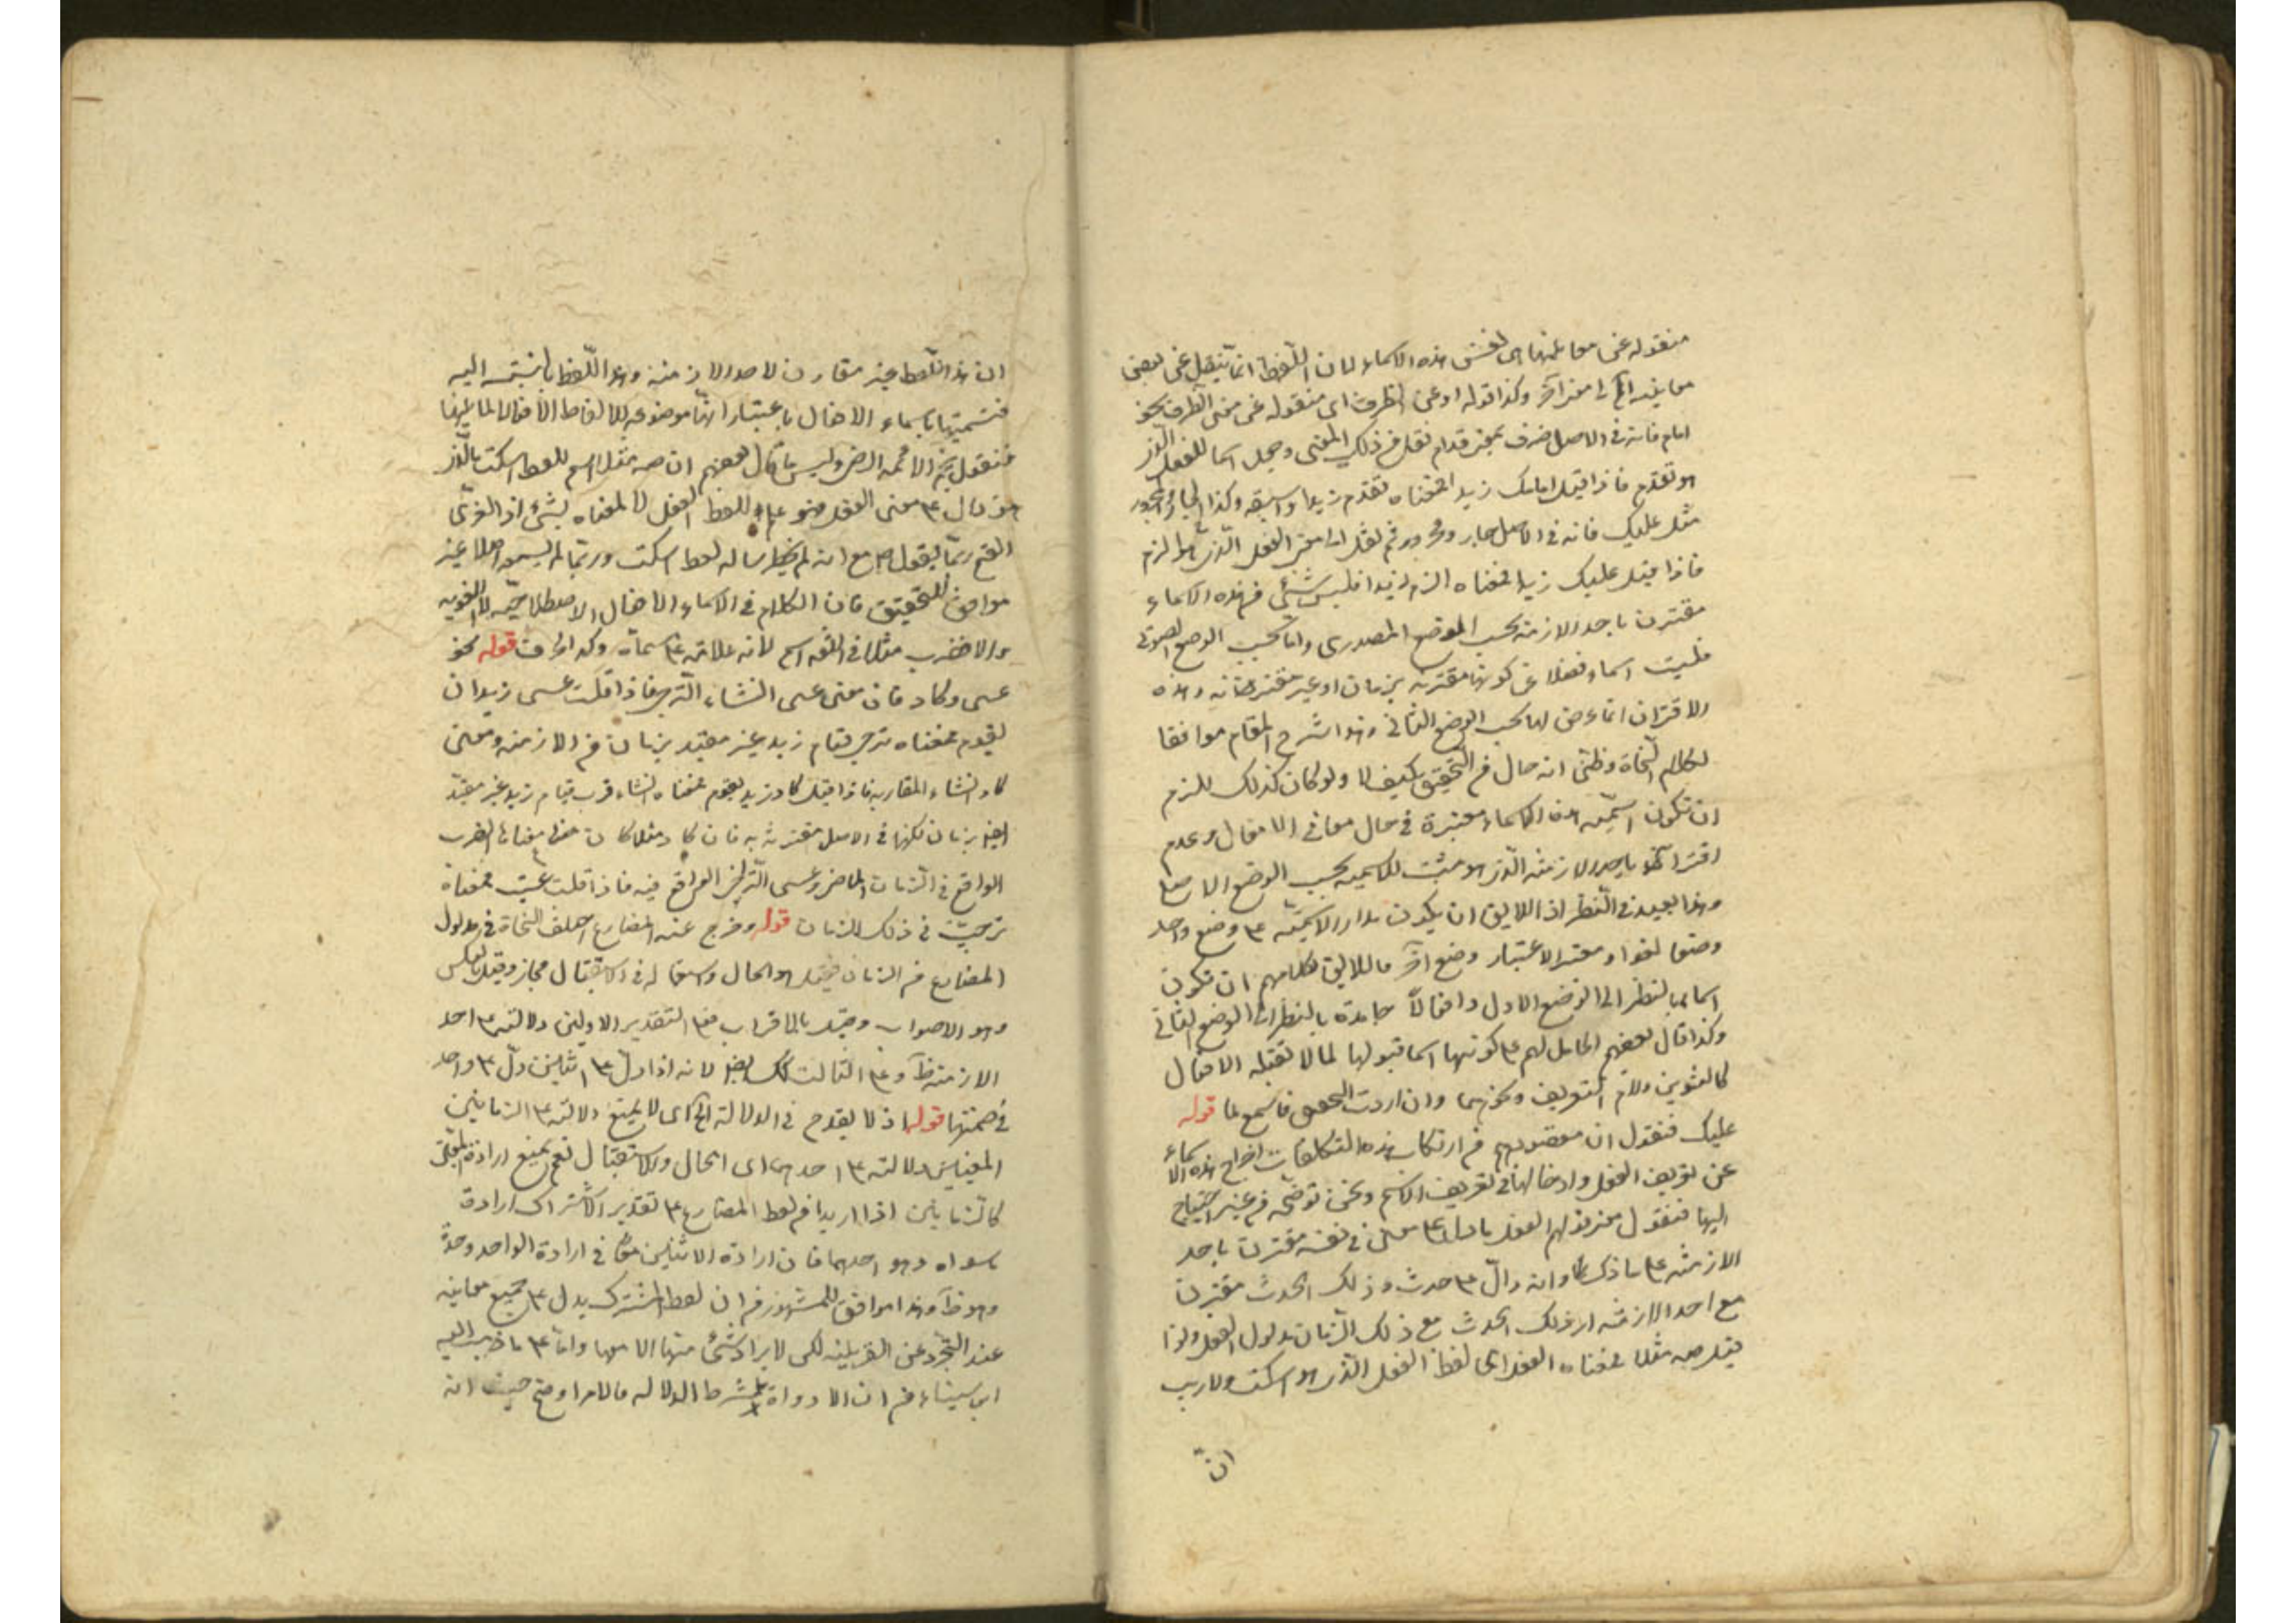 منقوله عن معانيها الى نفس هذه الاسماء لان اللفظ انما ينقل عن بعض
معانيه الى معنى آخر وكذا قوله او عن الظرف اى منقوله عن معنى الظرف نحو
امام فانه فى الاصل ظرف بمعنى قدام نقل عن ذلك المعنى وجعل اسما للفعل الذى
هو تقدم فاذا قيل امامك زيدا فمعناه تقدم زيدا واسبقه وكذا الجار والمجرور
مثل عليك فانه فى الاصل جار ومجرور ثم نقل الى معنى الفعل الذى هو الزم
فاذا قيل عليك زيدا فمعناه الزم زيدا فليس شئ من هذه الاسماء
مقترن باحد الازمنه بحسب الوضع المصدرى واما بحسب الوضع الصوتى
فليست اسماء فضلا عن كونها مقترنه بزمان او غير مقترنة وهذه
الاقتران انما عرض لها بحسب الوضع الثانى هذا شرح المقام موافقا
لكلام النحاة وظنى انه حال من التحقيق كيف لا ولو كان كذلك للزم
ان تكون اسميّة هذه الاسماء معتبرة فى حال معانى الافعال وعدم
اقترانها باحد الازمنه الذى هو مثبت للاسميه بحسب الوضع الاصلى
وهذا بعيد فى النظر اذ اللايق ان يكون مدار الاسميّه ع‍ وضع واحد
وضعا لغوا و معتبر الاعتبار وضع آخر فاللايق لكلامهم ان تكون
اسماء بالنظر الى الوضع الاول وافعالاً جامدة بالنظر الى الوضع الثانى
وكذا قال بعضهم الحامل لهم ع‍ كونها اسما قبولها لما لا تقبله الافعال
كالتنوين ولام التعريف ونحوهما وان اردت التحقيق فاسمع لما قوله
عليك فنقول ان مقصودهم من ارتكاب هذه التكلفات اخراج هذه الاسماء
عن تعريف الفعل وادخالها فى تعريف الاسم ونحن نوضحه من غير احتياج
اليها فنقول معنى قولهم الفعل ما دل ع‍ معنى فى نفسه مقترن باحد
الازمنه ع‍ ما ذكرنا وانه دالّ ع‍ حدث وذلك الحدث مقترن
مع احد الازمنه اى ذلك الحدث مع ذلك الزمان مدلول الفعل واذا
قيل صه مثلا فمعناه الفعل اى لفظ الفعل الذى هو اسكت ولا ريب
انّ
ان هذا اللفظ غير مقارن لاحد الازمنه وهذا اللفظ بالنسبة اليه
فتسميتها باسماء الافعال باعتبار انها موضوعه لالفاظ الافعال لا لمعانيها
هو دال ع‍ معنى الفعل فهو علم للفظ الفعل لا لمعناه بشئ اذ العربى
القح ربما يقول صه مع انه لم يخطر بباله لفظ اسكت وربما لم يسمعه اصلا غير
موافق للتحقيق فان الكلام فى الاسماء الافعال الاصطلاحيّه لا اللغويه
والا فضرب مثلا فى اللغه اسم لانه علامه ع‍ مسماه وكذا الحرف قوله نحو
عسى وكاد فان معنى عسى انشاء الترجى فاذا قلت عسى زيد ان
يقوم فمعناه ترجى قيام زيد غير مقيد بزمان من الازمنه ومعنى
كاد انشاء المقاربه فاذا قيل كاد زيد يقوم فمعناه انشاء قرب قيام زيد غير مقيّد
ايضا بزمان لكنها فى الاصل مقترنة به فان كاد مثلا كان معناها القرب
الواقع فى الزمان الماضى وعسى الترجى الواقع فيه فاذا قلت عسيت فمعناه
ترجيت فى ذلك الزمان قوله وخرج عنه المضارع اختلف النحاة فى مدلول
المضارع من الزمان فقيل هو الحال واستعماله فى الاستقبال مجاز وقيل بالعكس
وهو الاصواب وقيل بالاشتراك فع‍ التقدير الاولين دلالته ع‍ احد
الازمنه ظ وع‍ الثالث كذلك ايضا لانه اذا دل ع‍ اثنين دلّ ع‍ واحد
فى ضمنها قوله اذ لا يقدح فى الدلالة الخ اى لا يمنع دلالته ع‍ الزمانين
المعينين دلالته ع‍ احدهما اى الحال والاستقبال نعم يمنع ارادة المعنى
كالزمانين اذا اريدا من لفظ المضارع ع‍ تقدير الاشتراك ارادة
سواه وهو احدهما فان ارادة الاثنين معا فى ارادة الواحد وحدة
وهو ظ وهذا موافق للمشهور من ان لفظ المشترك يدل ع‍ جميع معانيه
عند التجرّد عن القرينه لكن لا يراد شئ منها الا معها واما ع‍ ما ذهب اليه
ابن سيناء من ان الارادة شرط الدلاله فالامر اوضح حيث انه